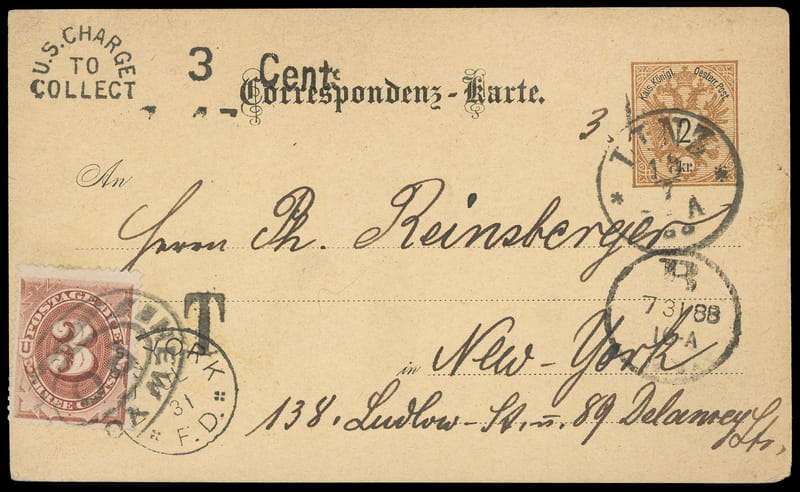 U.S. CHARGE
TO
COLLECT
3 Cents
Correspondenz-Karte.
Kais. Königl. Oesterr. Post.
2
kr.
3.
LINZ
18
7
A
An
Herrn Ph. Reinsberger
B
7 31 88
10-A
T
POSTAGE DUE
3
THREE CENTS
NEW YORK
YORK
31
F.D.
in New-York
138. Ludlow-St. u. 89 Delancey
Str.